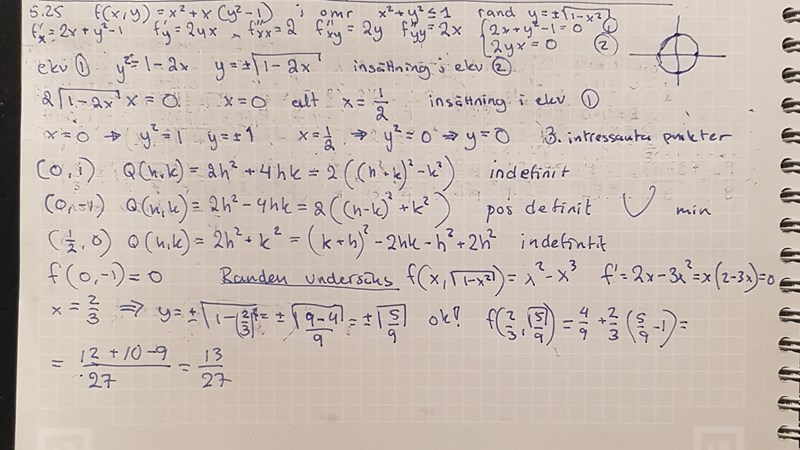 5.25 f(x,y) = x² + x(y²-1) i omr x²+y² ≤ 1 rand y = ±√(1-x²)
f'x = 2x+y²-1 f'y = 2yx f''xx = 2 f''xy = 2y f''yy = 2x { 2x+y²-1 = 0 ① 2yx = 0 ②
ekv ① y² = 1-2x y = ±√(1-2x) insättning i ekv ②
2√(1-2x) x = 0 x = 0 alt x = 1/2 insättning i ekv ①
x = 0 ⇒ y² = 1 y = ±1 x = 1/2 ⇒ y² = 0 ⇒ y = 0 3. intressanta punkter
(0,1) Q(h,k) = 2h² + 4hk = 2((h+k)² - k²) indefinit
(0,-1) Q(h,k) = 2h² - 4hk = 2((h-k)² + k²) pos definit ∪ min
(1/2, 0) Q(h,k) = 2h² + k² = (k+h)² - 2hk - h² + 2h² indefintit
f(0,-1) = 0 Randen undersöks f(x, √(1-x²)) = x² - x³ f' = 2x - 3x² = x(2-3x) = 0
x = 2/3 ⇒ y = ±√(1-(2/3)²) = ±√((9-4)/9) = ±√(5/9) ok! f(2/3, √(5/9)) = 4/9 + 2/3 (5/9 - 1) =
= (12+10-9)/27 = 13/27